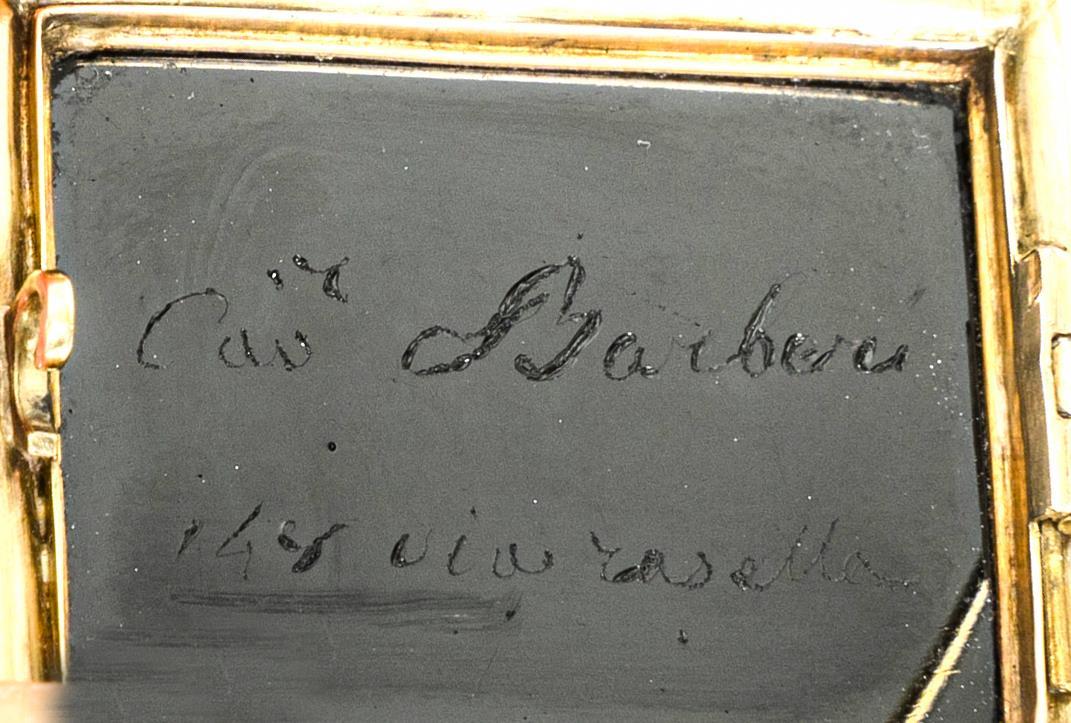 Cavʳ Barberi
148 via rasella